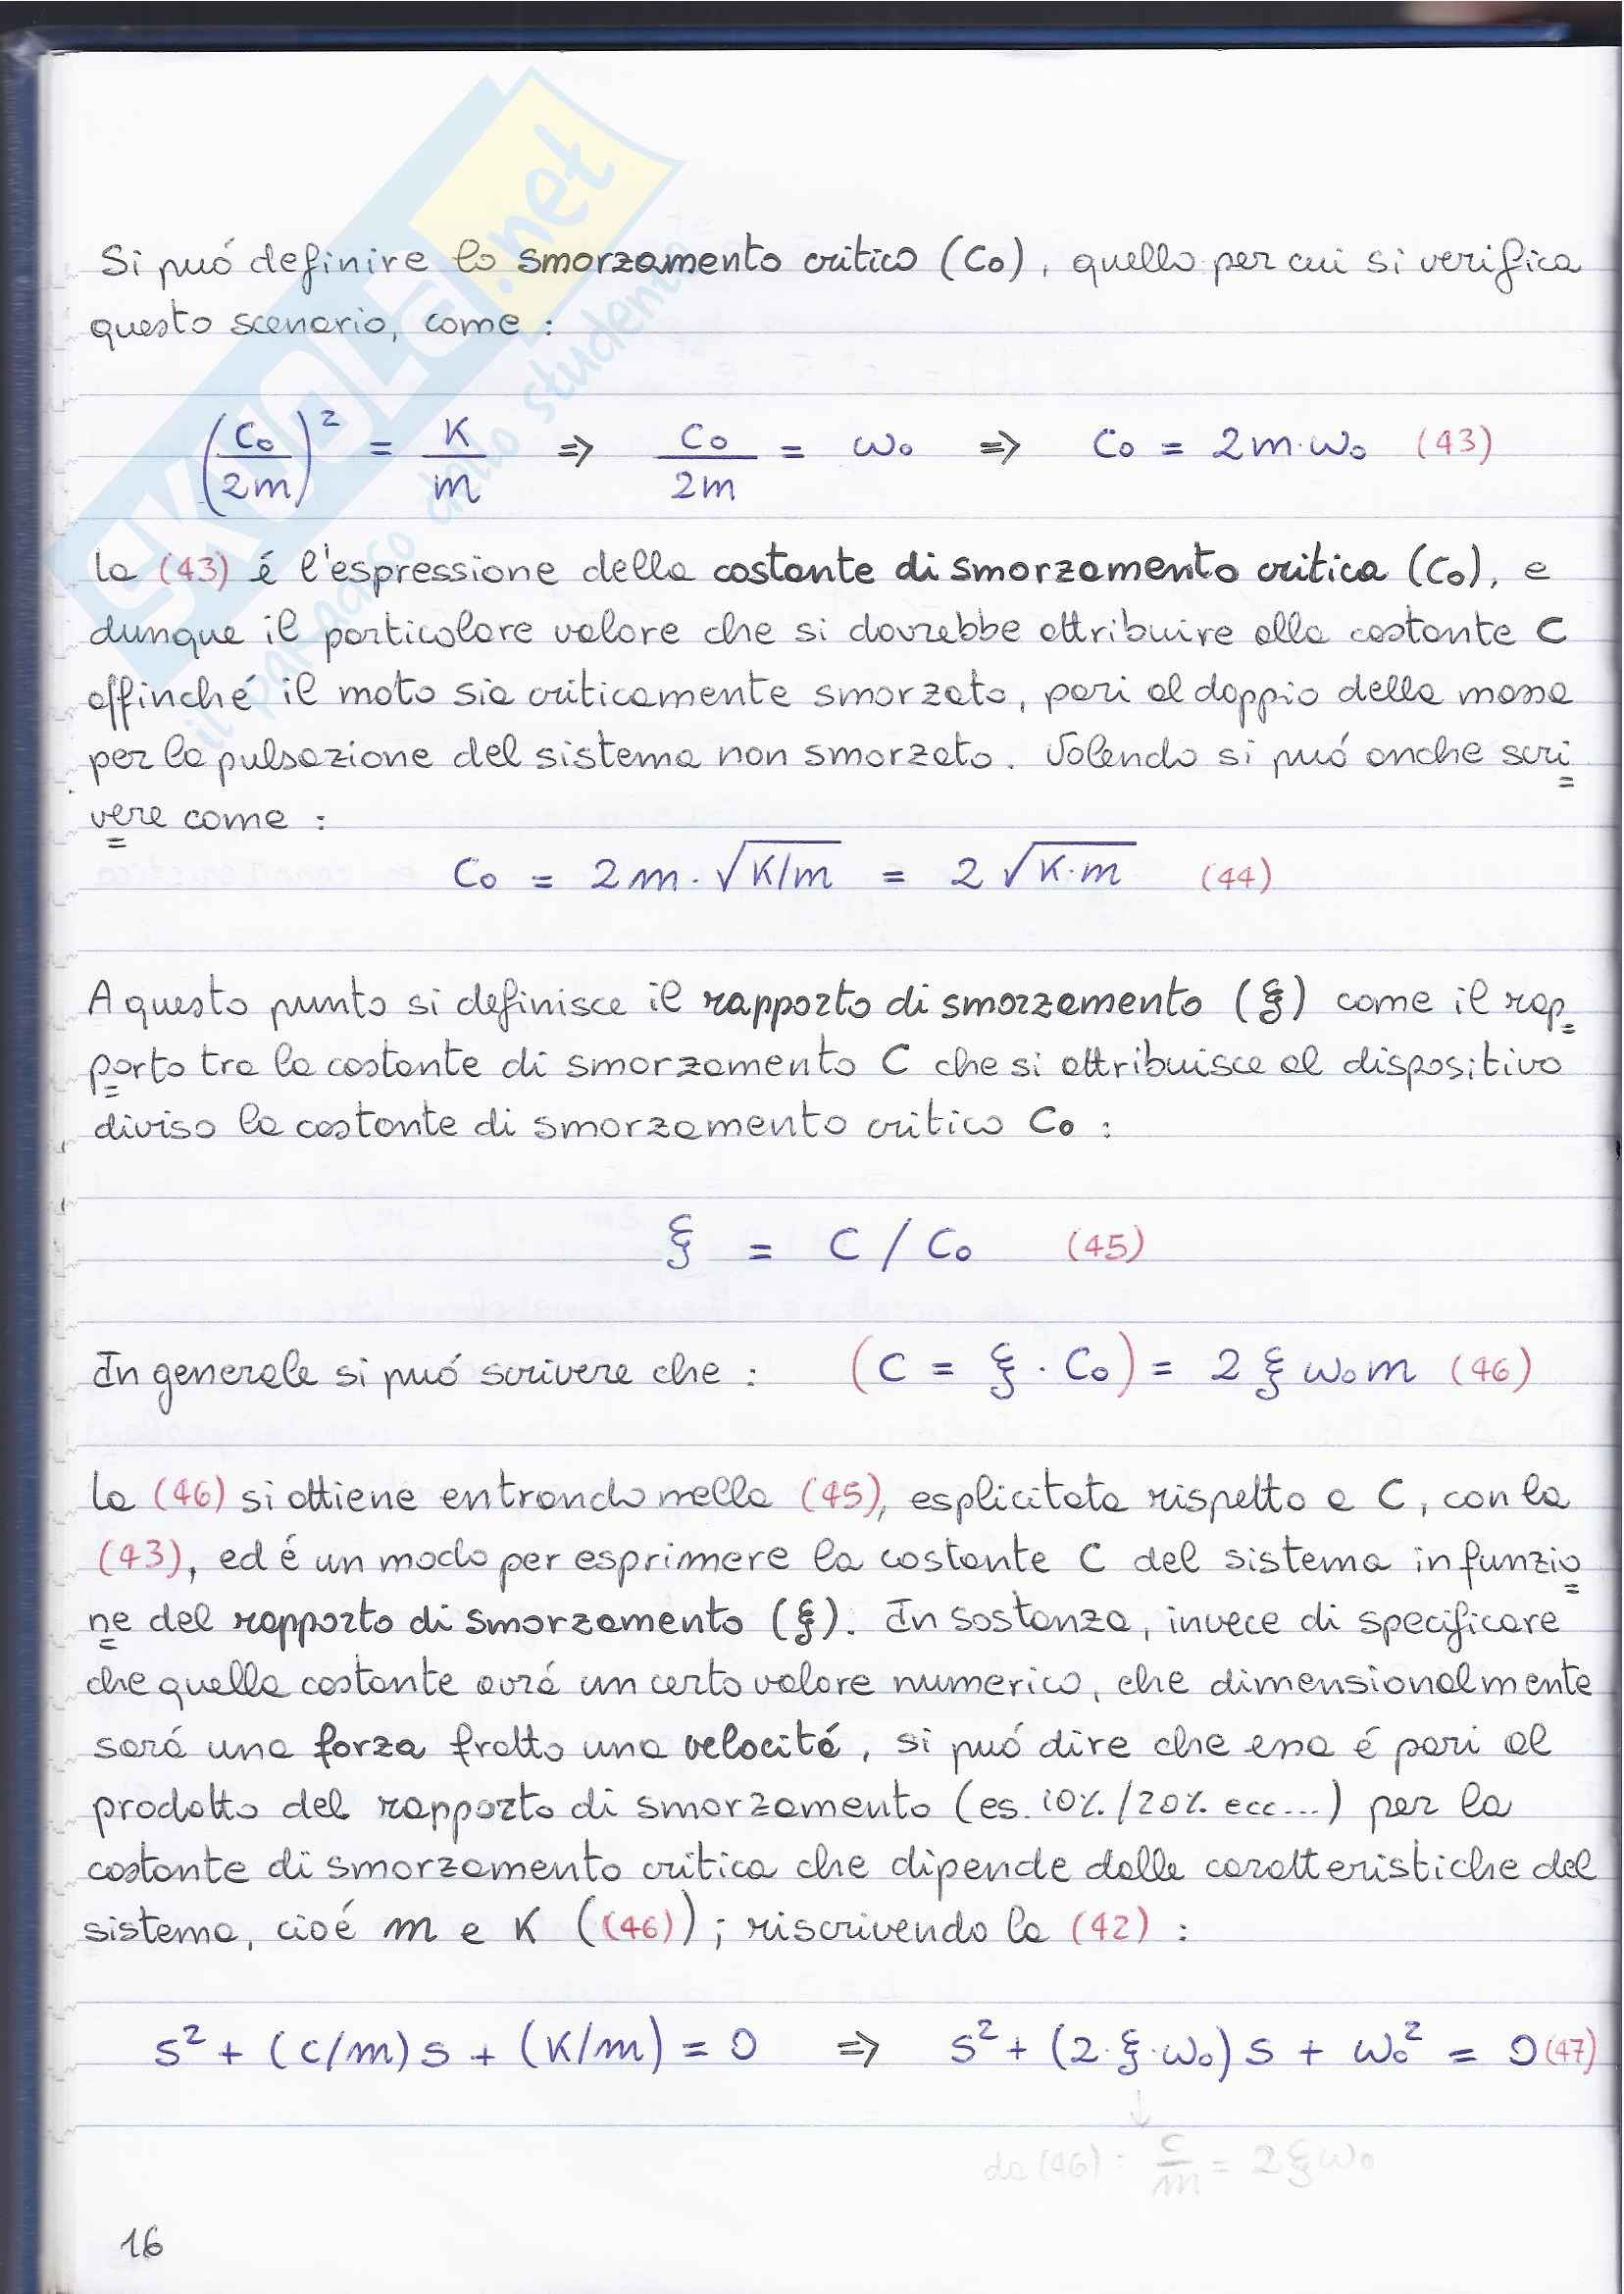 SKUOLA.net
il paradiso dello studente
Si può definire lo smorzamento critico (C₀), quello per cui si verifica
questo scenario, come :
(C₀/2m)² = K/m ⇒ C₀/2m = ω₀ ⇒ C₀ = 2m·ω₀ (43)
la (43) é l'espressione della costante di smorzamento critica (C₀), e
dunque il particolare valore che si dovrebbe attribuire alla costante C
affinché il moto sia criticamente smorzato, pari al doppio della massa
per la pulsazione del sistema non smorzato. Volendo si può anche scri
vere come :
C₀ = 2m·√K/m = 2√K·m (44)
A questo punto si definisce il rapporto di smorzamento (ξ) come il rap
porto tra la costante di smorzamento C che si attribuisce al dispositivo
diviso la costante di smorzamento critico C₀ :
ξ = C / C₀ (45)
In generale si può scrivere che : (C = ξ · C₀) = 2 ξ ω₀ m (46)
la (46) si ottiene entrando nella (45), esplicitata rispetto a C, con la
(43), ed é un modo per esprimere la costante C del sistema in funzio
ne del rapporto di smorzamento (ξ). In sostanza, invece di specificare
che quella costante avrá un certo valore numerico, che dimensionalmente
sará una forza fratto una velocitá, si può dire che essa é pari al
prodotto del rapporto di smorzamento (es. 10%/20% ecc...) per la
costante di smorzamento critica che dipende dalle caratteristiche del
sistema, cioé m e K ((46)); riscrivendo la (42) :
s² + (c/m)s + (K/m) = 0 ⇒ s² + (2·ξ·ω₀)s + ω₀² = 0 (47)
↓
da (46) : c/m = 2ξω₀
16